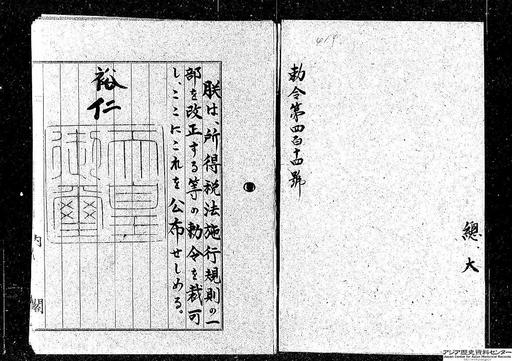 419
總. 大
勅令第四百十四號
朕は、所得税法施行規則の一
部を改正する等の勅令を裁可
し、ここにこれを公布せしめる。
裕仁
天皇
御璽
内閣
アジア歴史資料センター
Japan Center for Asian Historical Records